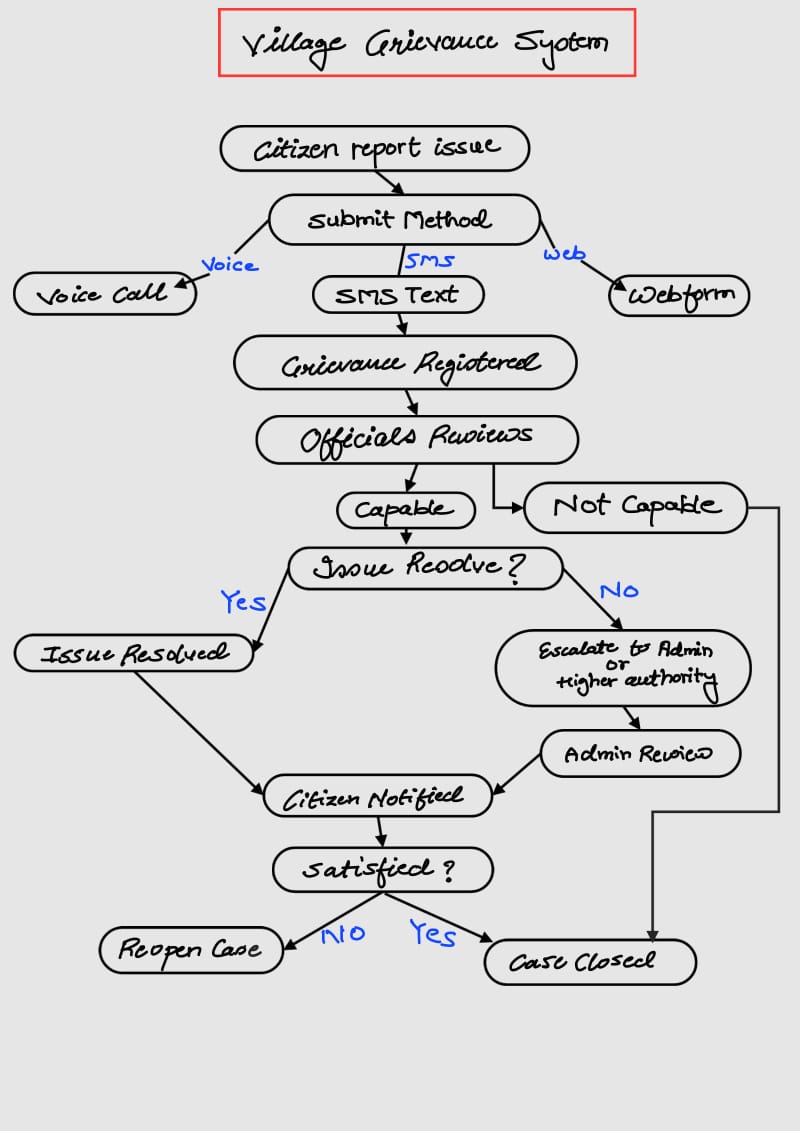 Village Grievance System
Citizen report issue
Submit Method
Voice
SMS
Web
Voice Call
SMS Text
Webform
Grievance Registered
Officials Reviews
Capable
Not Capable
Issue Resolve?
Yes
No
Issue Resolved
Escalate to Admin
or
Higher authority
Admin Review
Citizen Notified
Satisfied?
No
Yes
Reopen Case
Case Closed